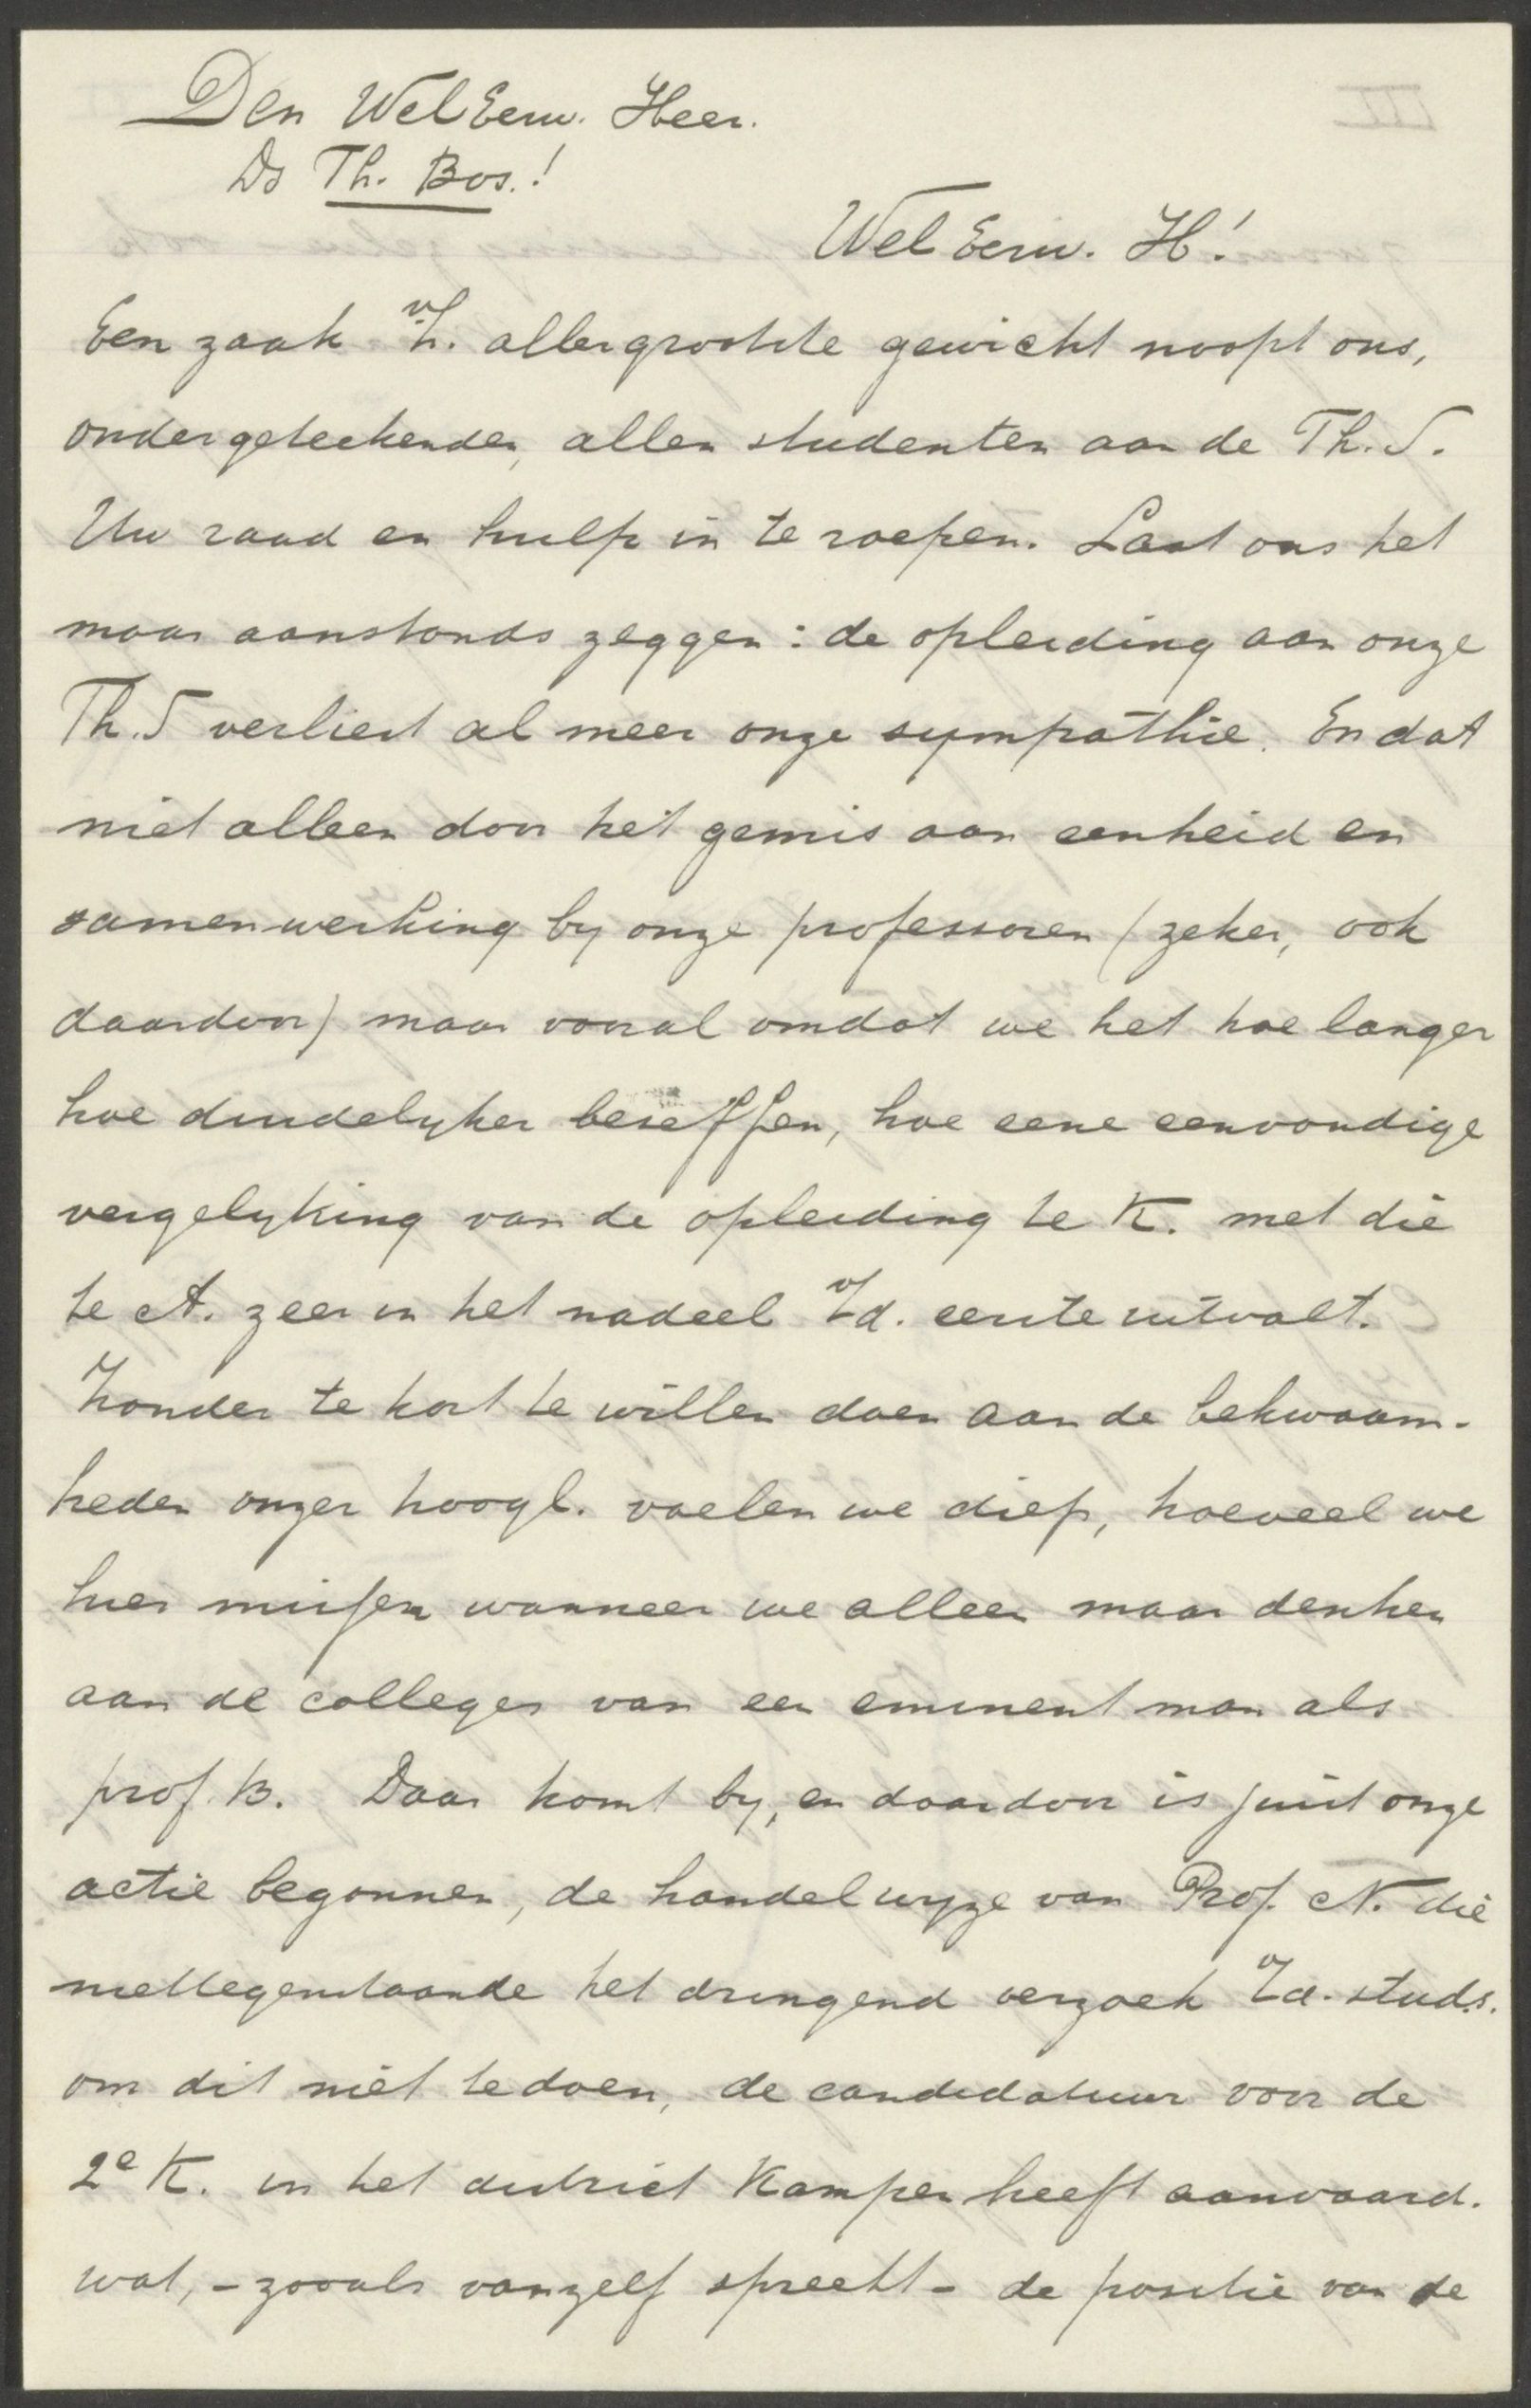 Den WelEerw. Heer.
Ds Th. Bos.!
WelEerw. H!
Een zaak v/h. allergrootste gewicht noopt ons,
ondergeteekenden, allen studenten aan de Th. S.
Uw raad en hulp in te roepen. Laat ons het
maar aanstonds zeggen: de opleiding aan onze
Th. S verliest al meer onze sympathie. En dat
niet alleen door het gemis aan eenheid en
samenwerking by onze professoren (zeker, ook
daardoor) maar vooral omdat we het hoe langer
hoe duidelyker beseffen, hoe eene eenvoudige
vergelyking van de opleiding te K. met die
te A. zeer in het nadeel v/d. eerste uitvalt.
Zonder te kort te willen doen aan de bekwaam-
heden onzer hoogl. voelen we diep, hoeveel we
hier missen wanneer we alleen maar denken
aan de colleges van een eminent man als
prof. B. Daar komt by, en daardoor is juist onze
actie begonnen, de handelwyze van Prof. N. die
niettegenstaande het dringend verzoek v/d. studs.
om dit niet te doen, de candidatuur voor de
2e K. in het district Kampen heeft aanvaard.
wat, - zooals vanzelf spreekt - de positie van de